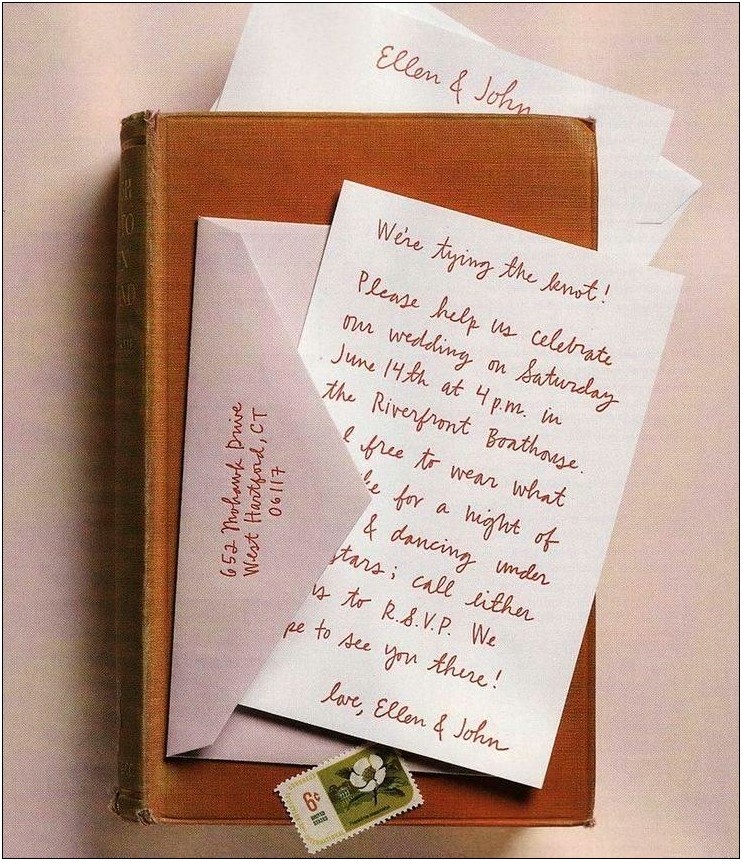 Ellen & John
We're tying the knot!
Please help us celebrate
our wedding on Saturday
June 14th at 4 p.m. in
the Riverfront Boathouse.
l free to wear what
ke for a night of
& dancing under
stars; call either
us to R.S.V.P. We
pe to see you there!
love, Ellen & John
652 Mohawk Drive
West Hartford, CT
06117
6¢
UNITED
STATES